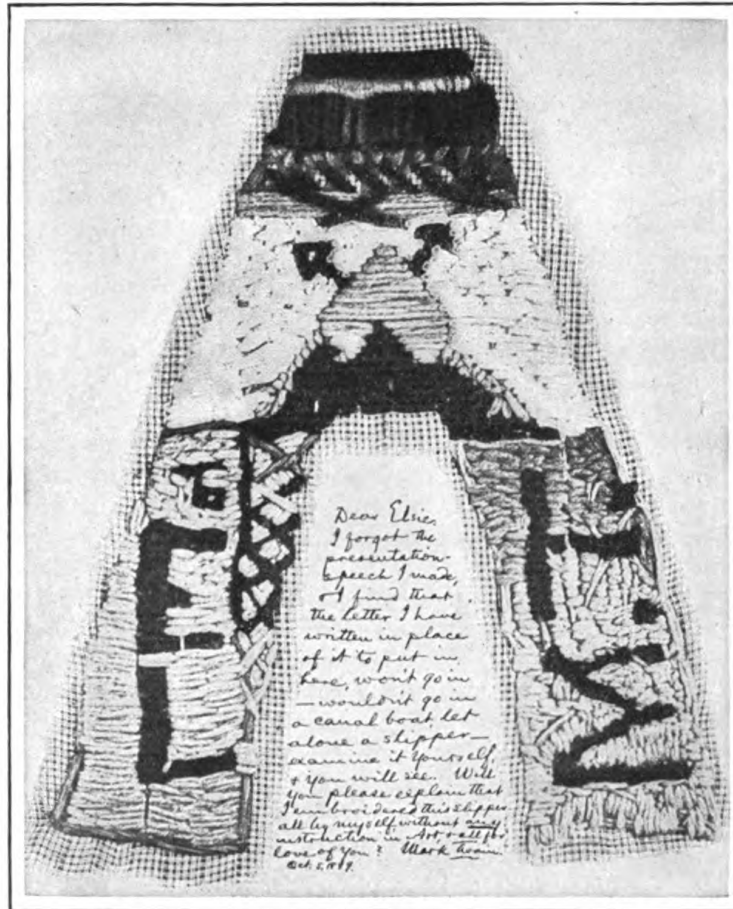 Dear Elsie,
I forgot the
presentation-
speech I made,
& I find that
the letter I have
written in place
of it to put in
here, won't go in
— wouldn't go in
a canal boat, let
alone a slipper—
examine it yourself,
& you will see. Will
you please explain that
I embroidered this slipper
all by myself, without any
instruction in Art, & all for
love of you? Mark Twain.
Oct. 5,